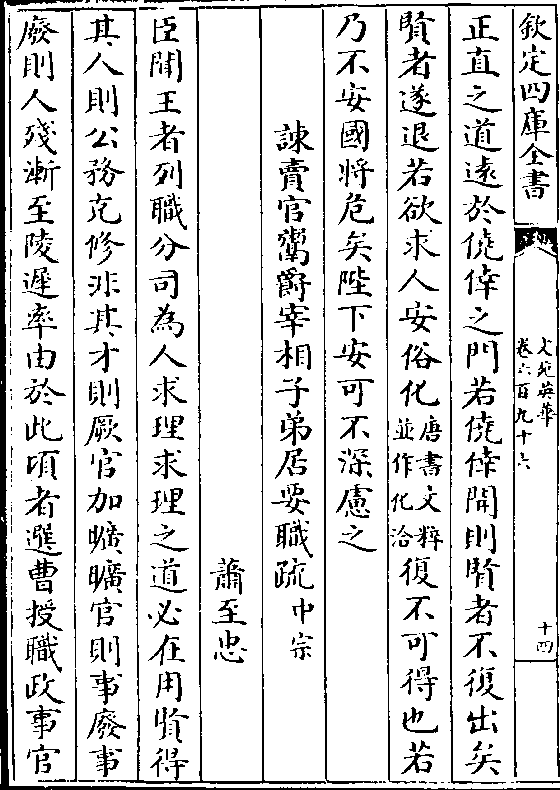 欽定四庫全書
文苑英華
卷六百九十六
十四
正直之道遠於僥倖之門若僥倖開則賢者不復出矣
賢者遂退若欲求人安俗化唐書文粹並作化洽復不可得也若
乃不安國將危矣陛下安可不深慮之
諫賣官鬻爵宰相子弟居要職疏中宗
蕭至忠
臣聞王者列職分司為人求理求理之道必在用賢得
其人則公務克修非其才則厥官加曠曠官則事廢事
廢則人殘漸至陵遲率由於此頃者選曹授職政事官